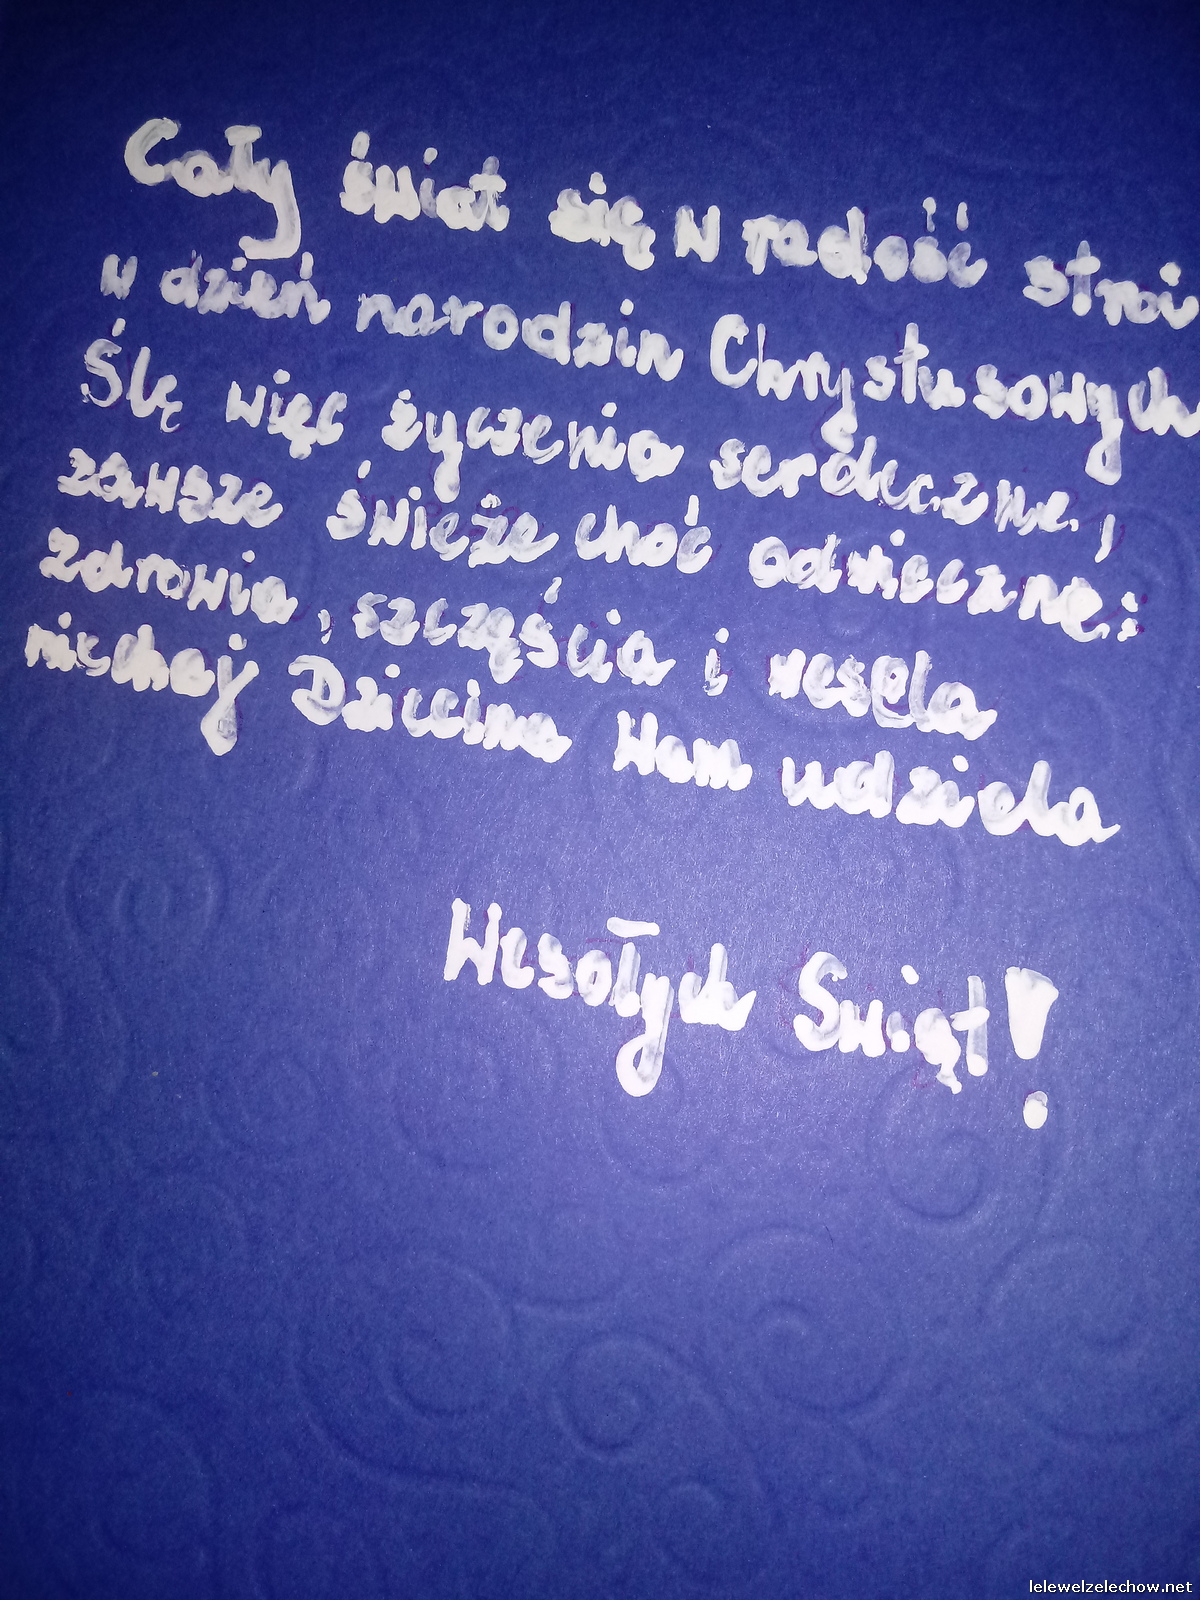 Cały świat się w radość stroi
w dzień narodzin Chrystusowych
Ślę więc życzenia serdeczne,
zawsze świeże choć odwieczne:
zdrowia, szczęścia i wesela
niechaj Dziecina Wam udziela
Wesołych Swiąt!
lelewelzelechow.net